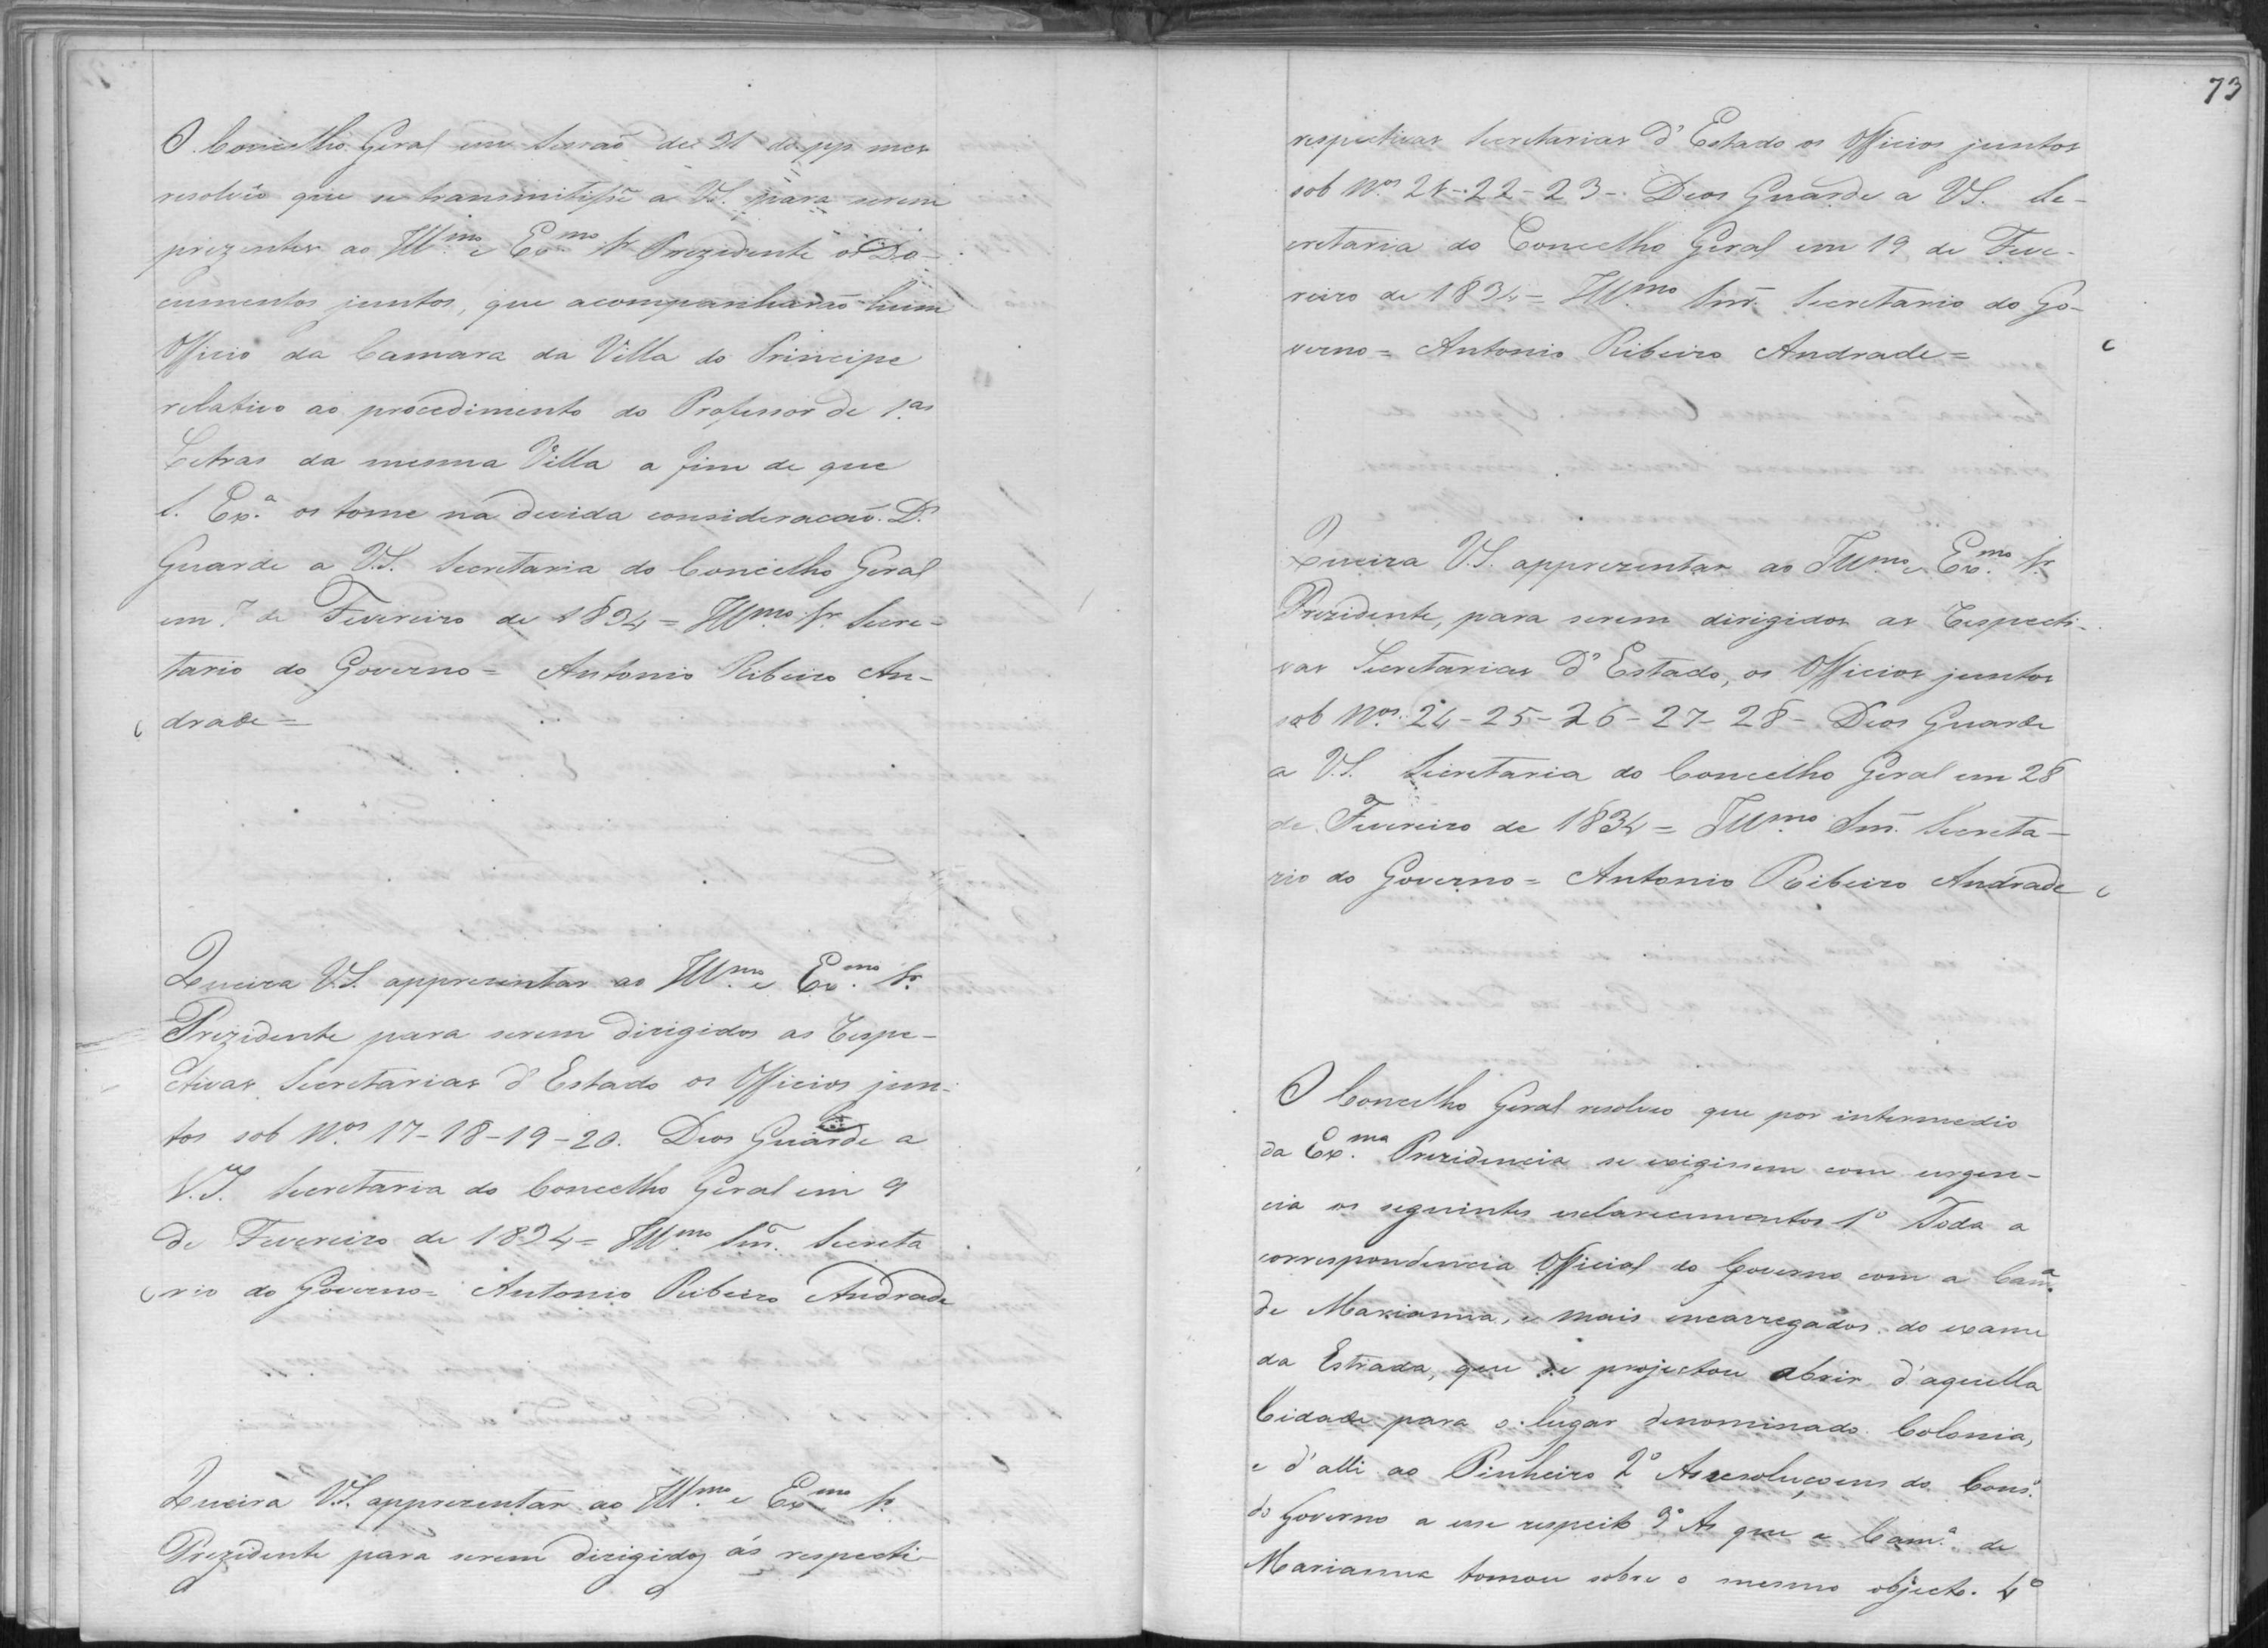 O Concelho Geral em Sessaõ de 31 do pp. mes
resolvêo que se transmitisse a VS. para serem
prezentes ao Illmo. e Exmo. Sr. Prezidente os Do-
cumentos juntos, que acompanharaõ hum
Officio da Camara da Villa do Principe
relativo ao procedimento do Professor de 1.as
Letras da mesma Villa a fim de que
S. Exª. os tome na devida consideracaõ. D.s
Guarde a V.S. Secretaria do Concelho Geral
em 7 de Fevereiro de 1834 = Illmo. Sr. Secre-
tario do Governo = Antonio Ribeiro An-
drade =
Queira V.S. apprezentar ao Illmo. e Exmo. Sr.
Prezidente para serem dirigidos as respe-
ctivas Secretarias d'Estado os Officios jun-
tos sob Nos. 17-18-19-20. Deos Guarde a
V.S. Secretaria do Concelho Geral em 9
de Fevereiro de 1834 = Illmo. Snr. Secreta
rio do Governo = Antonio Ribeiro Andrade
Queira V.S. apprezentar ao Illmo. e Exmo. Sr.
Prezidente para serem dirigidos ás respecti-
73
respectivas Secretarias d'Estado os Officios juntos
sob Nos. 21-22-23- Deos Guarde a VS. Se-
cretaria do Concelho Geral em 19 de Feve-
reiro de 1834 = Illmo. Snr. Secretario do Go-
verno = Antonio Ribeiro Andrade =
Queira V.S. apprezentar ao Illmo. e Exmo. Sr.
Prezidente, para serem dirigidos as respecti-
vas Secretarias d'Estado, os Officios juntos
sob Nos. 24-25-26-27-28- Deos Guarde
a V.S. Secretaria do Concelho Geral em 28
de Fevereiro de 1834 = Illmo. Snr. Secreta-
rio do Governo = Antonio Ribeiro Andrade
O Concelho Geral resolveo que por intermedio
da Exma. Prezidencia se exigissem com urgen-
cia os seguintes esclarecimentos 1º Toda a
correspondencia Official do Governo com a Camª.
de Marianna, e mais encarregados do exame
da Estrada, que se projectou abrir d'aquella
Cidade para o lugar denominado Colonia,
e d'alli ao Pinheiro 2º As resoluçoens do Consº.
do Governo a esse respeito 3º As que a Camª. de
Marianna tomou sobre o mesmo objecto. 4º